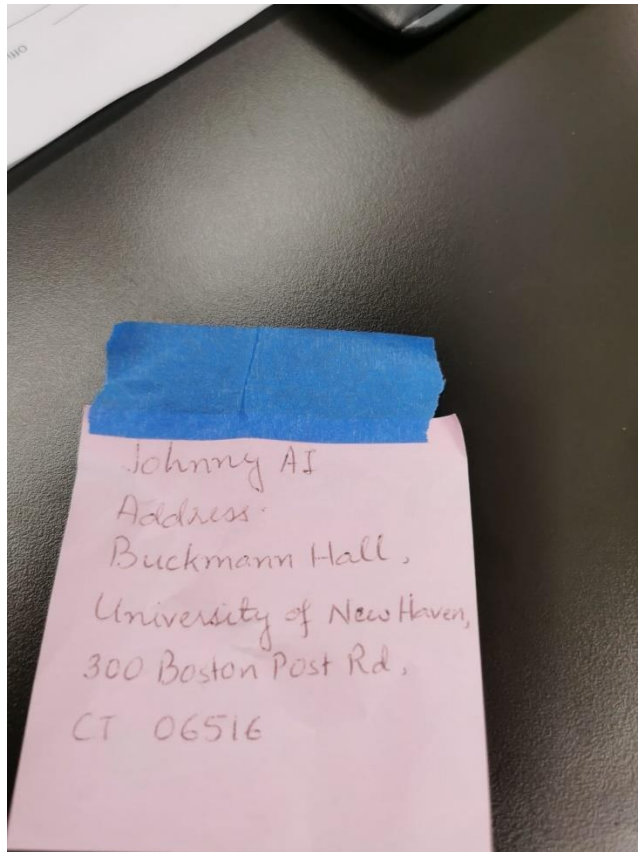 Johnny AI
Address.
Buckmann Hall,
University of New Haven,
300 Boston Post Rd,
CT 06516